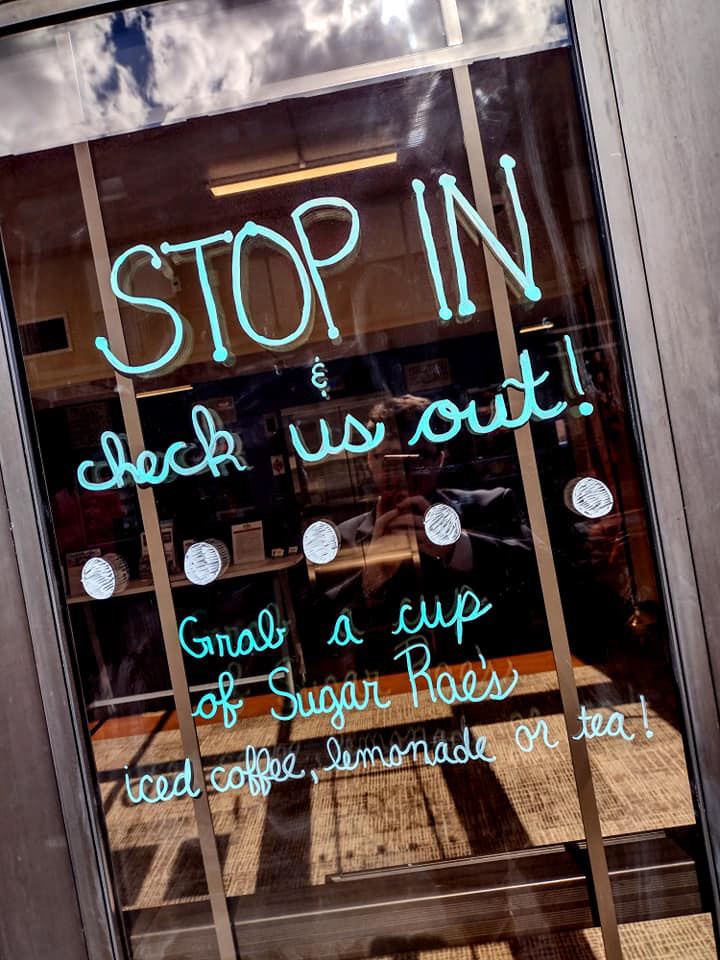 STOP IN
&
check us out!
Grab a cup
of Sugar Rae's
iced coffee, lemonade or tea!